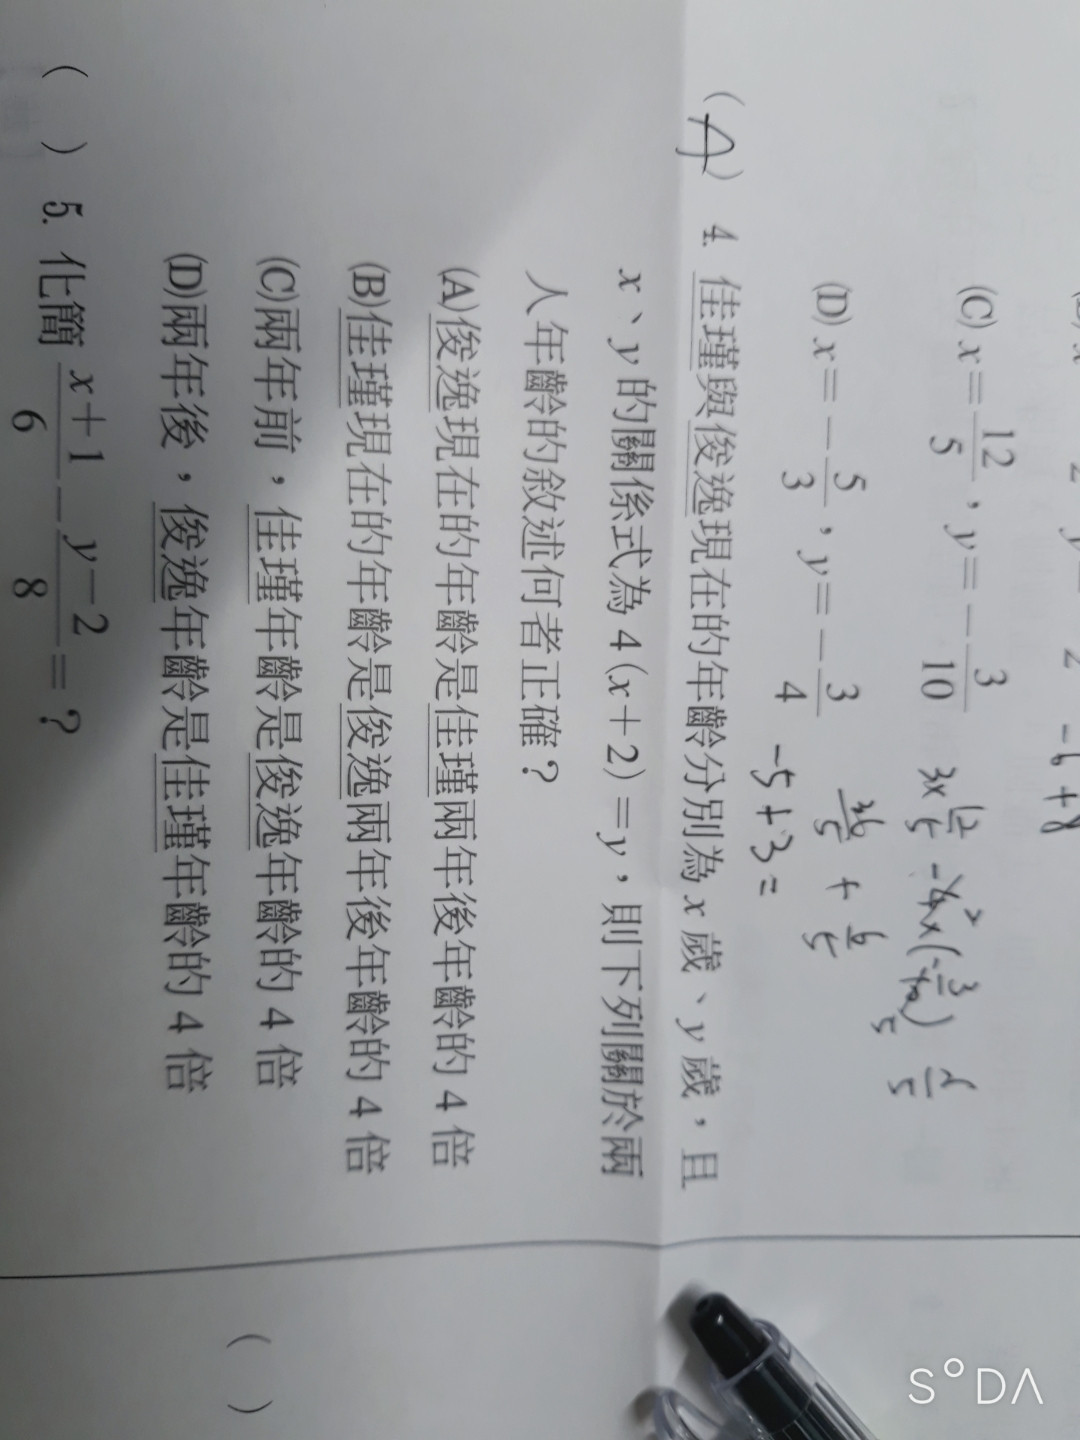 (C) x = 12/5 , y = - 3/10
3x 12/5
36/5 + 6/5
(D) x = - 5/3 , y = - 3/4
-5+3=
(A) 4. 佳瑾與俊逸現在的年齡分別為 x 歲、y 歲，且
x、y 的關係式為 4 (x+2)=y，則下列關於兩
人年齡的敘述何者正確？
(A)俊逸現在的年齡是佳瑾兩年後年齡的 4 倍
(B)佳瑾現在的年齡是俊逸兩年後年齡的 4 倍
(C)兩年前，佳瑾年齡是俊逸年齡的 4 倍
(D)兩年後，俊逸年齡是佳瑾年齡的 4 倍
( ) 5. 化簡 x+1/6 - y-2/8 = ?
( )
SODA